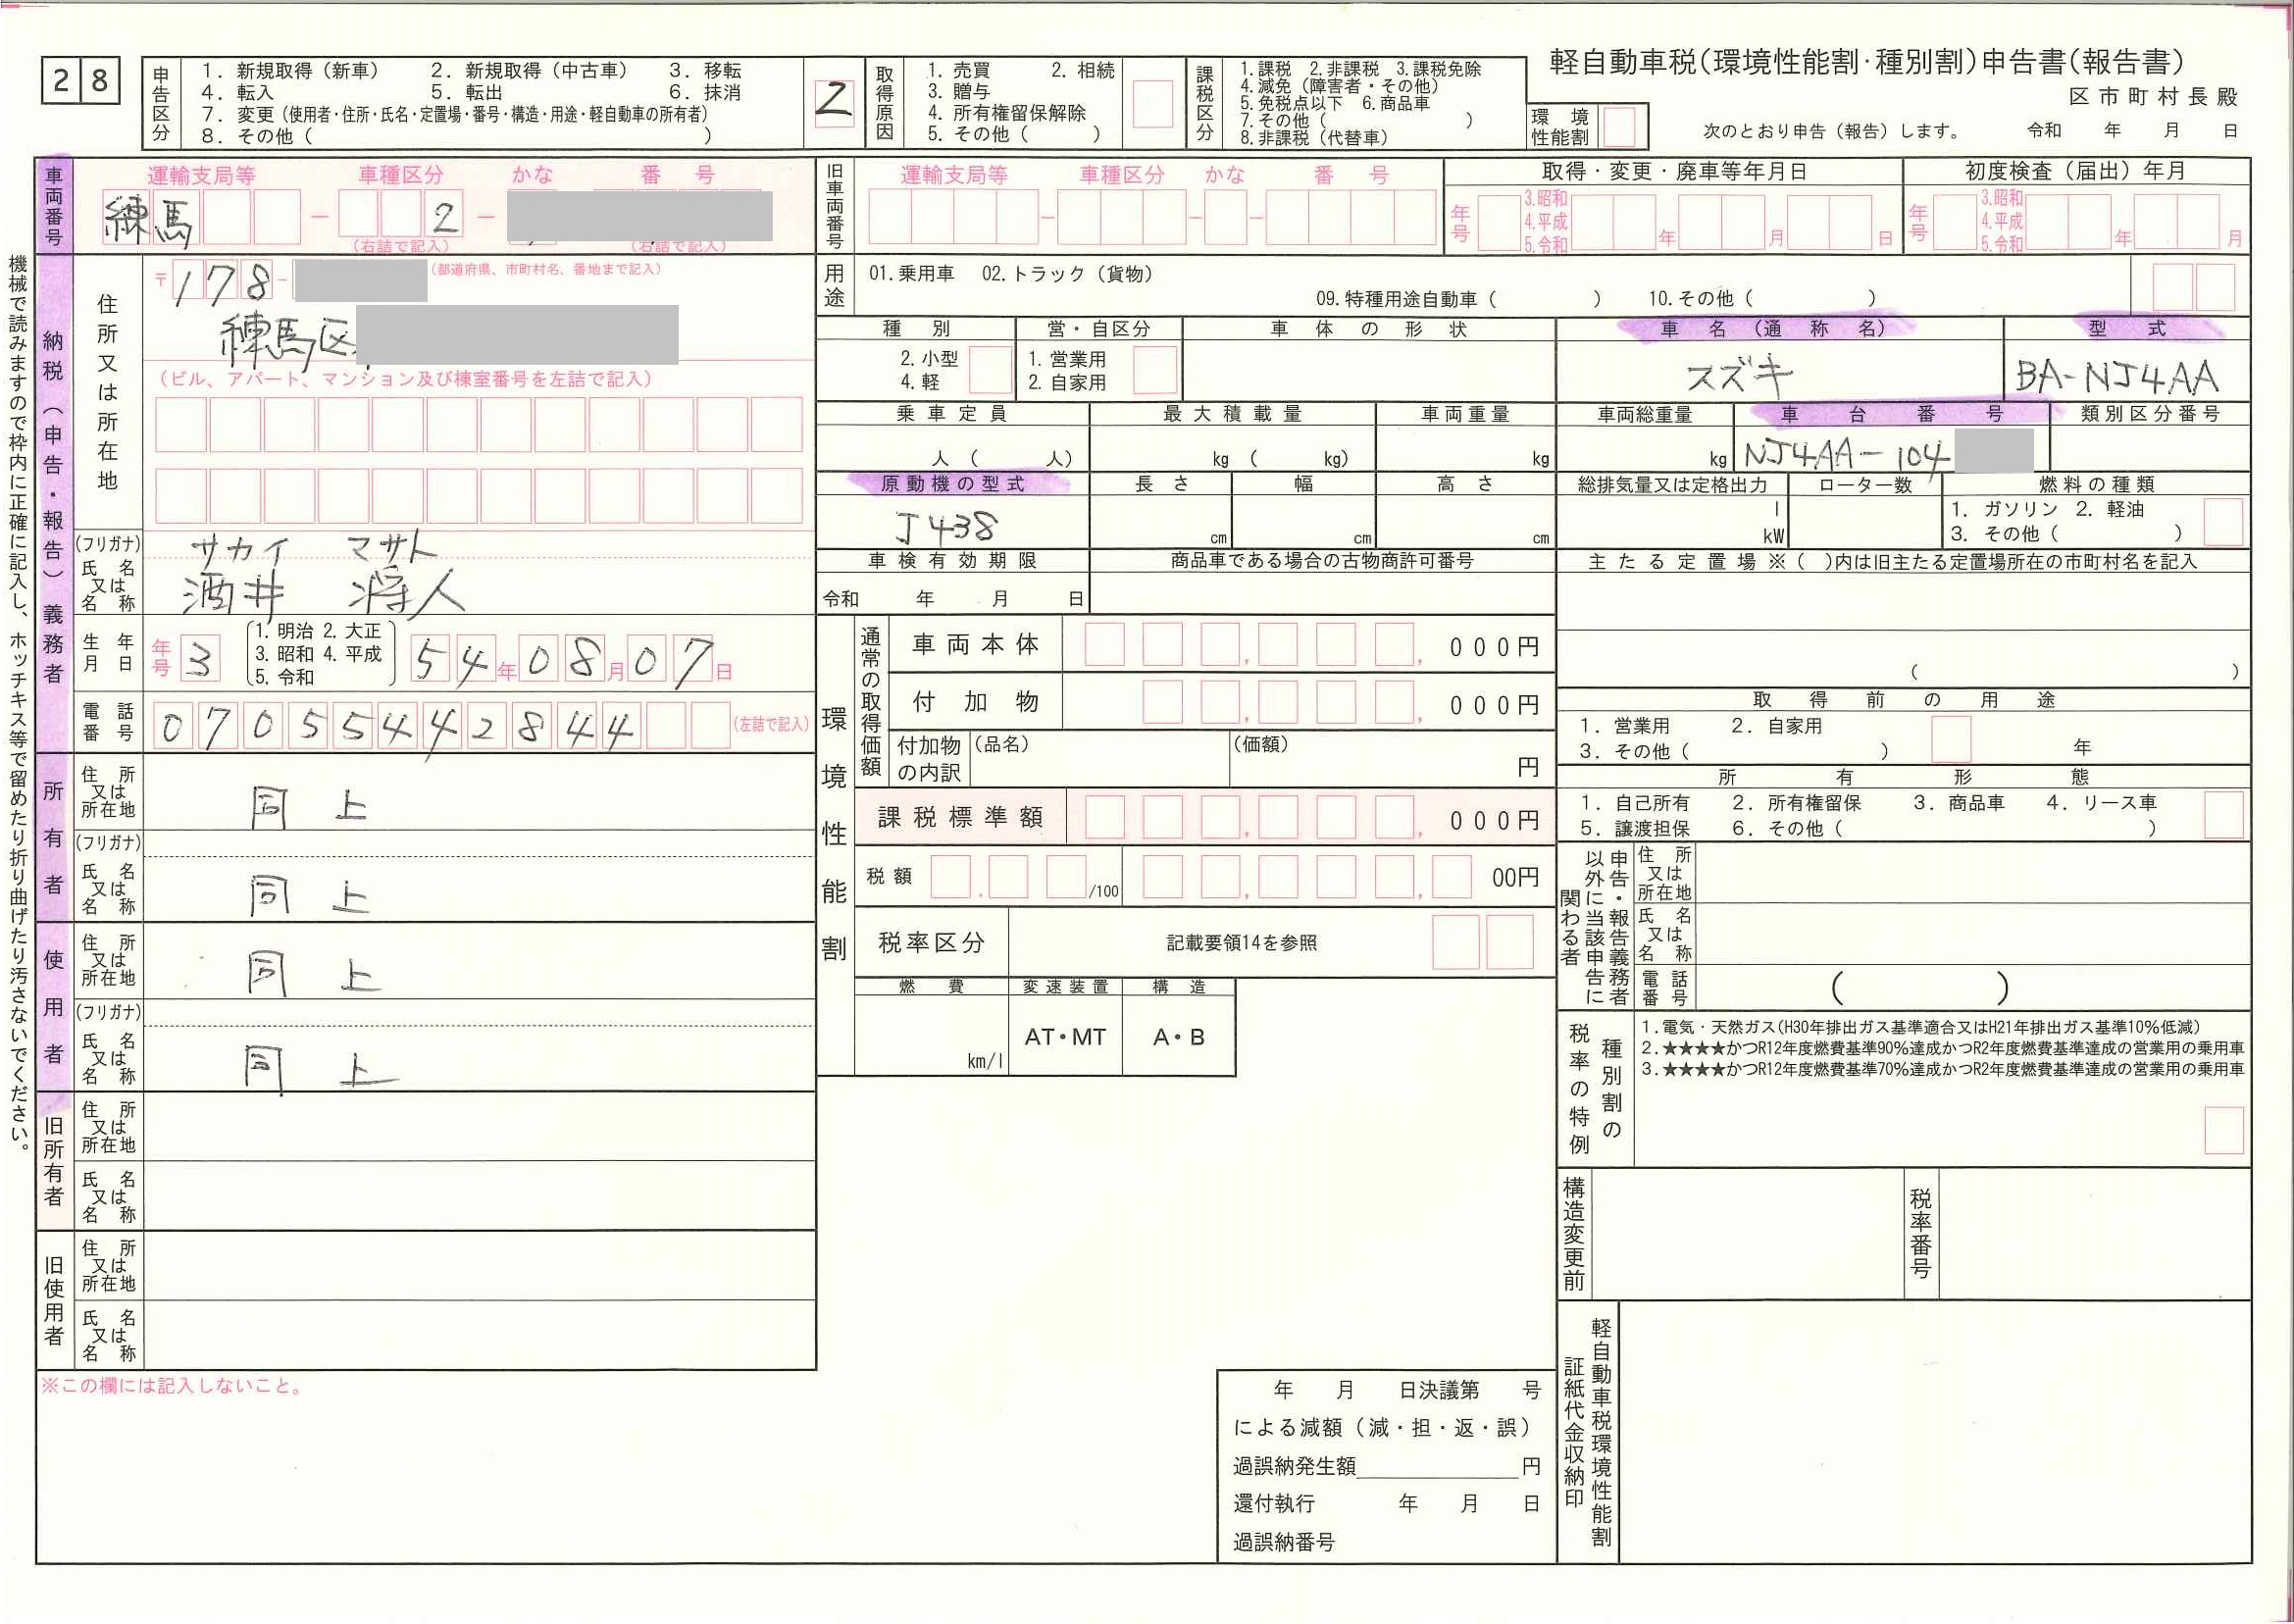 28
軽自動車税(環境性能割・種別割)申告書(報告書)
区市町村長殿
次のとおり申告(報告)します。 令和 年 月 日
申告区分
1. 新規取得(新車) 2. 新規取得(中古車) 3. 移転
4. 転入 5. 転出 6. 抹消
7. 変更(使用者・住所・氏名・定置場・番号・構造・用途・軽自動車の所有者)
8. その他( )
2
取得原因
1. 売買 2. 相続
3. 贈与
4. 所有権留保解除
5. その他( )
課税区分
1.課税 2.非課税 3.課税免除
4.減免(障害者・その他)
5.免税点以下 6.商品車
7.その他( )
8.非課税(代替車)
環境性能割
車両番号
運輸支局等 車種区分 かな 番号
練馬 - 2 -
(右詰で記入) (右詰で記入)
旧車両番号
運輸支局等 車種区分 かな 番号
取得・変更・廃車等年月日
年号 3.昭和 4.平成 5.令和 年 月 日
初度検査(届出)年月
年号 3.昭和 4.平成 5.令和 年 月
機械で読みますので枠内に正確に記入し、ホッチキス等で留めたり折り曲げたり汚さないでください。
納税(申告・報告)義務者
住所又は所在地
〒178- (都道府県、市町村名、番地まで記入)
練馬区
(ビル、アパート、マンション及び棟室番号を左詰で記入)
(フリガナ) サカイ マサト
氏名又は名称 酒井 将人
生年月日 年号 3 1. 明治 2. 大正 3. 昭和 4. 平成 5. 令和 54年08月07日
電話番号 07055442844 (左詰で記入)
所有者
住所又は所在地 同上
(フリガナ)
氏名又は名称 同上
使用者
住所又は所在地 同上
(フリガナ)
氏名又は名称 同上
旧所有者
住所又は所在地
氏名又は名称
旧使用者
住所又は所在地
氏名又は名称
※この欄には記入しないこと。
用途
01.乗用車 02.トラック(貨物)
09.特種用途自動車( ) 10.その他( )
種別 営・自区分 車体の形状 車名(通称名) 型式
2. 小型 4. 軽
1. 営業用 2. 自家用
スズキ BA-NJ4AA
乗車定員 最大積載量 車両重量 車両総重量 車台番号 類別区分番号
人( 人) kg( kg) kg kg NJ4AA-104
原動機の型式 長さ 幅 高さ 総排気量又は定格出力 ローター数 燃料の種類
J438 cm cm cm l kW
1. ガソリン 2. 軽油
3. その他( )
車検有効期限 商品車である場合の古物商許可番号 主たる定置場※( )内は旧主たる定置場所在の市町村名を記入
令和 年 月 日
( )
環境性能割
通常の取得価額
車両本体 , , 000円
付加物 , , 000円
付加物の内訳 (品名) (価額) 円
課税標準額 , , 000円
税額 . /100 , , 00円
税率区分 記載要領14を参照
燃費 変速装置 構造
km/l AT・MT A・B
取得前の用途
1. 営業用 2. 自家用
3. その他( ) 年
所有形態
1. 自己所有 2. 所有権留保 3. 商品車 4. リース車
5. 譲渡担保 6. その他( )
申告・報告義務者以外に当該申告に関わる者
住所又は所在地
氏名又は名称
電話番号 ( )
種別割の税率の特例
1.電気・天然ガス(H30年排出ガス基準適合又はH21年排出ガス基準10%低減)
2.★★★★かつR12年度燃費基準90%達成かつR2年度燃費基準達成の営業用の乗用車
3.★★★★かつR12年度燃費基準70%達成かつR2年度燃費基準達成の営業用の乗用車
構造変更前 税率番号
軽自動車税環境性能割証紙代金収納印
年 月 日決議第 号
による減額(減・担・返・誤)
過誤納発生額 円
還付執行 年 月 日
過誤納番号